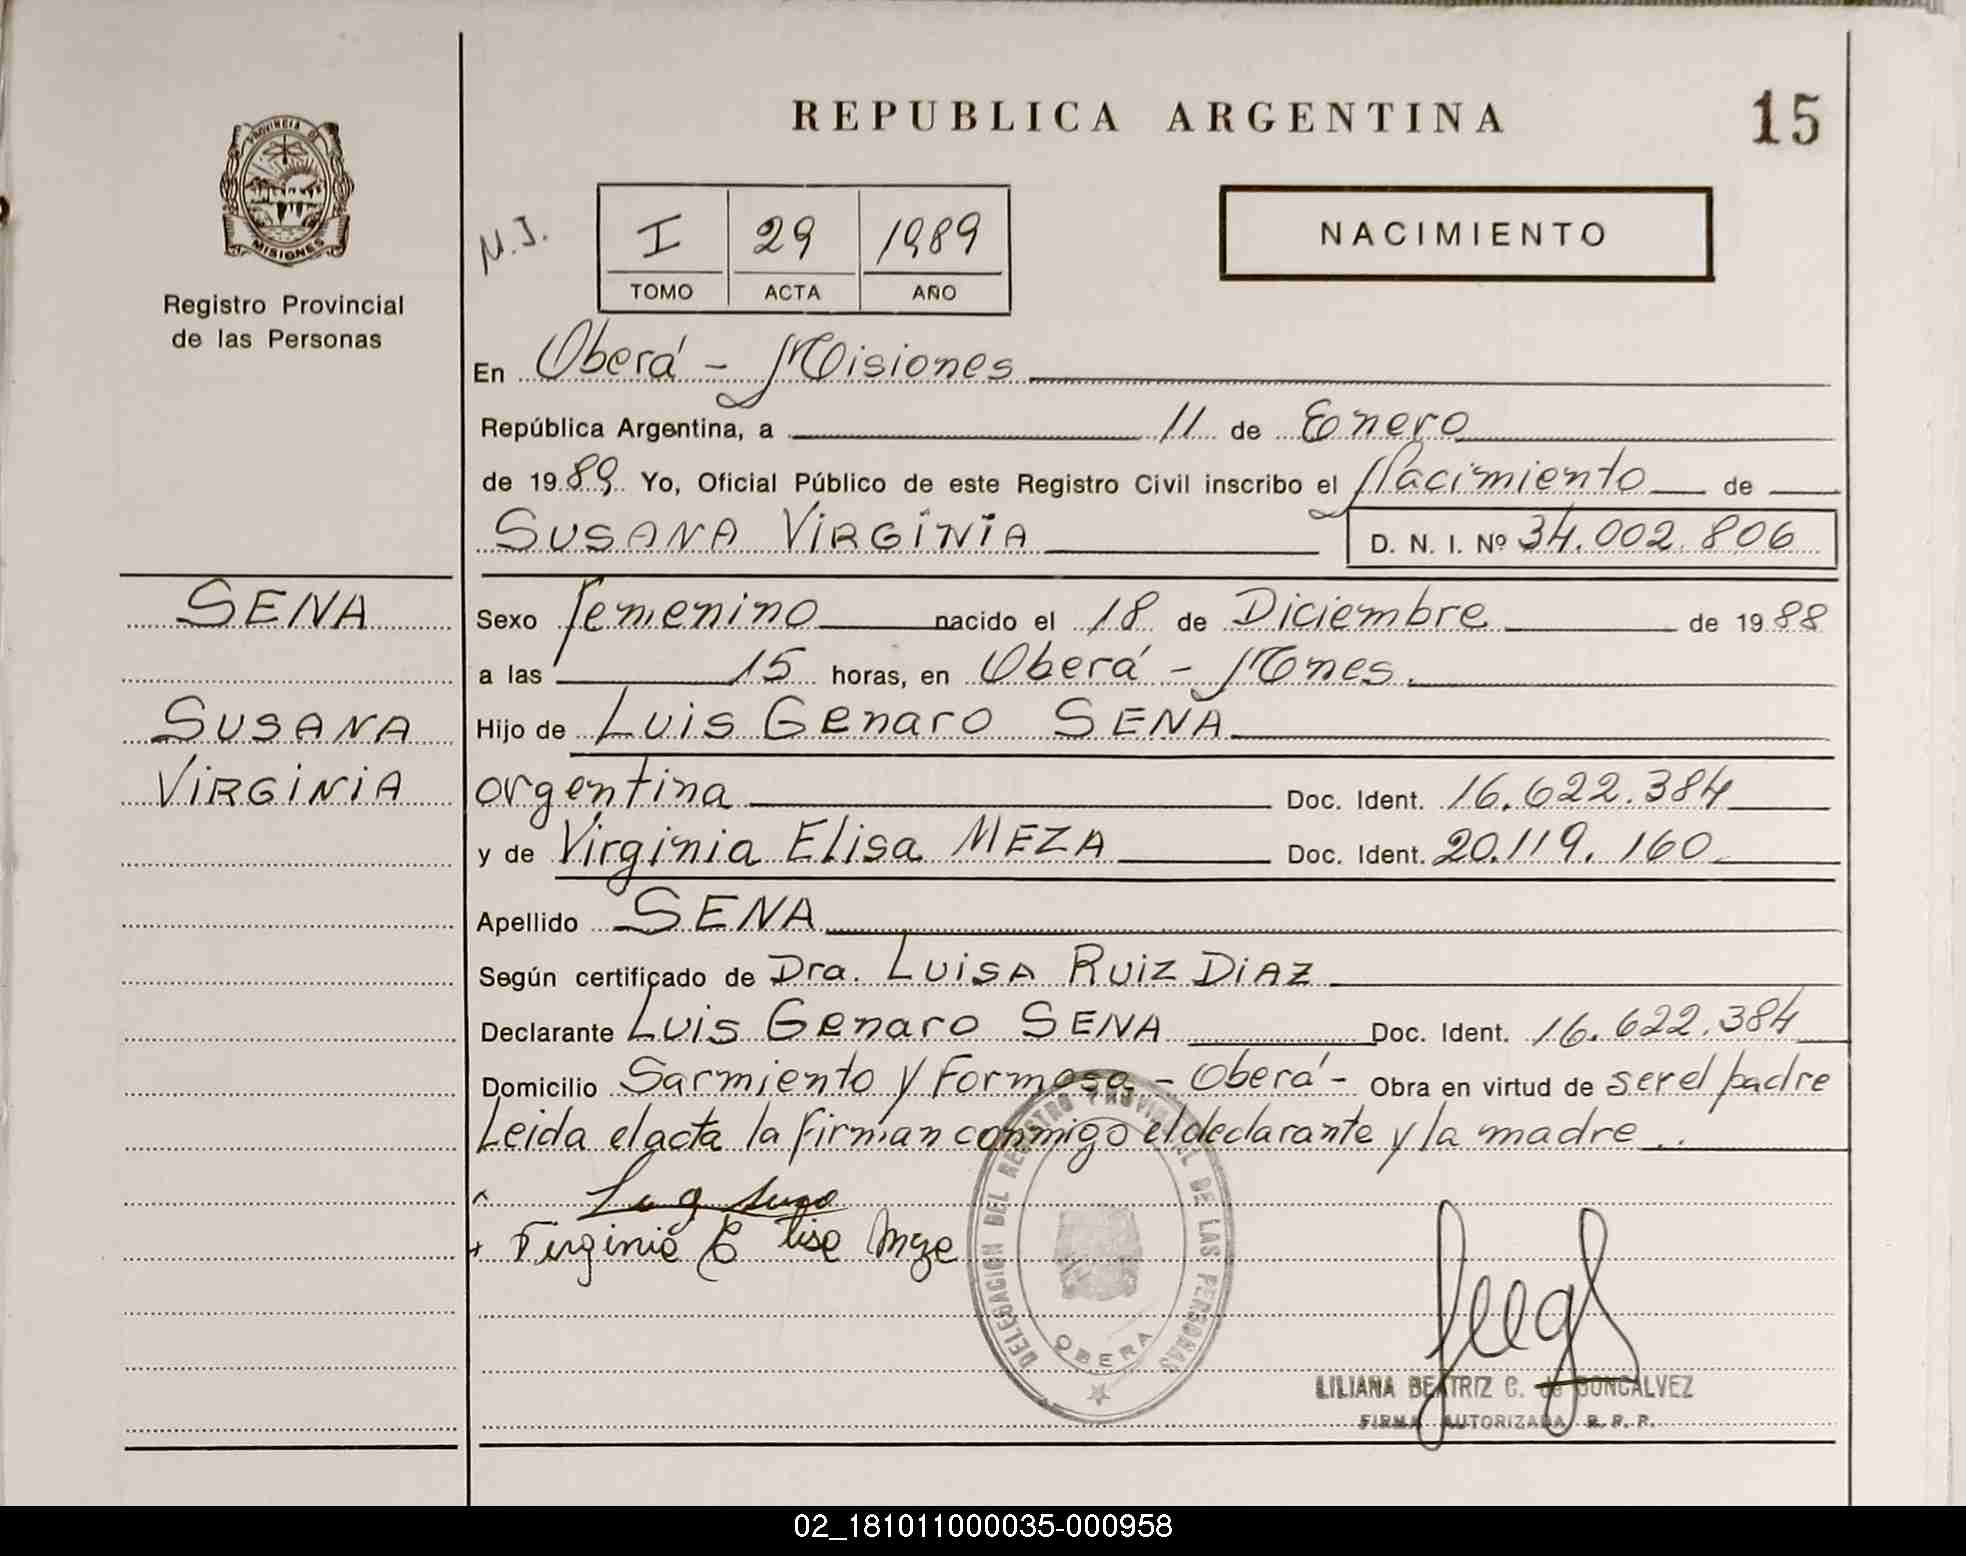 REPUBLICA ARGENTINA
15
PROVINCIA DE
MISIONES
Registro Provincial
de las Personas
N.J.
I 29 1989
TOMO ACTA AÑO
NACIMIENTO
En Oberá - Misiones
República Argentina, a 11 de Enero
de 1989 Yo, Oficial Público de este Registro Civil inscribo el Nacimiento de
SUSANA VIRGINIA
D. N. I. Nº 34.002.806
SENA
SUSANA
VIRGINIA
Sexo femenino nacido el 18 de Diciembre de 1988
a las 15 horas, en Oberá - Mnes.
Hijo de Luis Genaro SENA
argentina Doc. Ident. 16.622.384
y de Virginia Elisa MEZA Doc. Ident. 20.119.160
Apellido SENA
Según certificado de Dra. LUISA RUIZ DIAZ
Declarante Luis Genaro SENA Doc. Ident. 16.622.384
Domicilio Sarmiento y Formosa - Oberá - Obra en virtud de ser el padre
Leida el acta la firman conmigo el declarante y la madre..
DELEGACION DEL REGISTRO PROVINCIAL DE LAS PERSONAS
OBERA
LILIANA BEATRIZ C. de GONCALVEZ
FIRMA AUTORIZADA R. P. P.
02_181011000035-000958